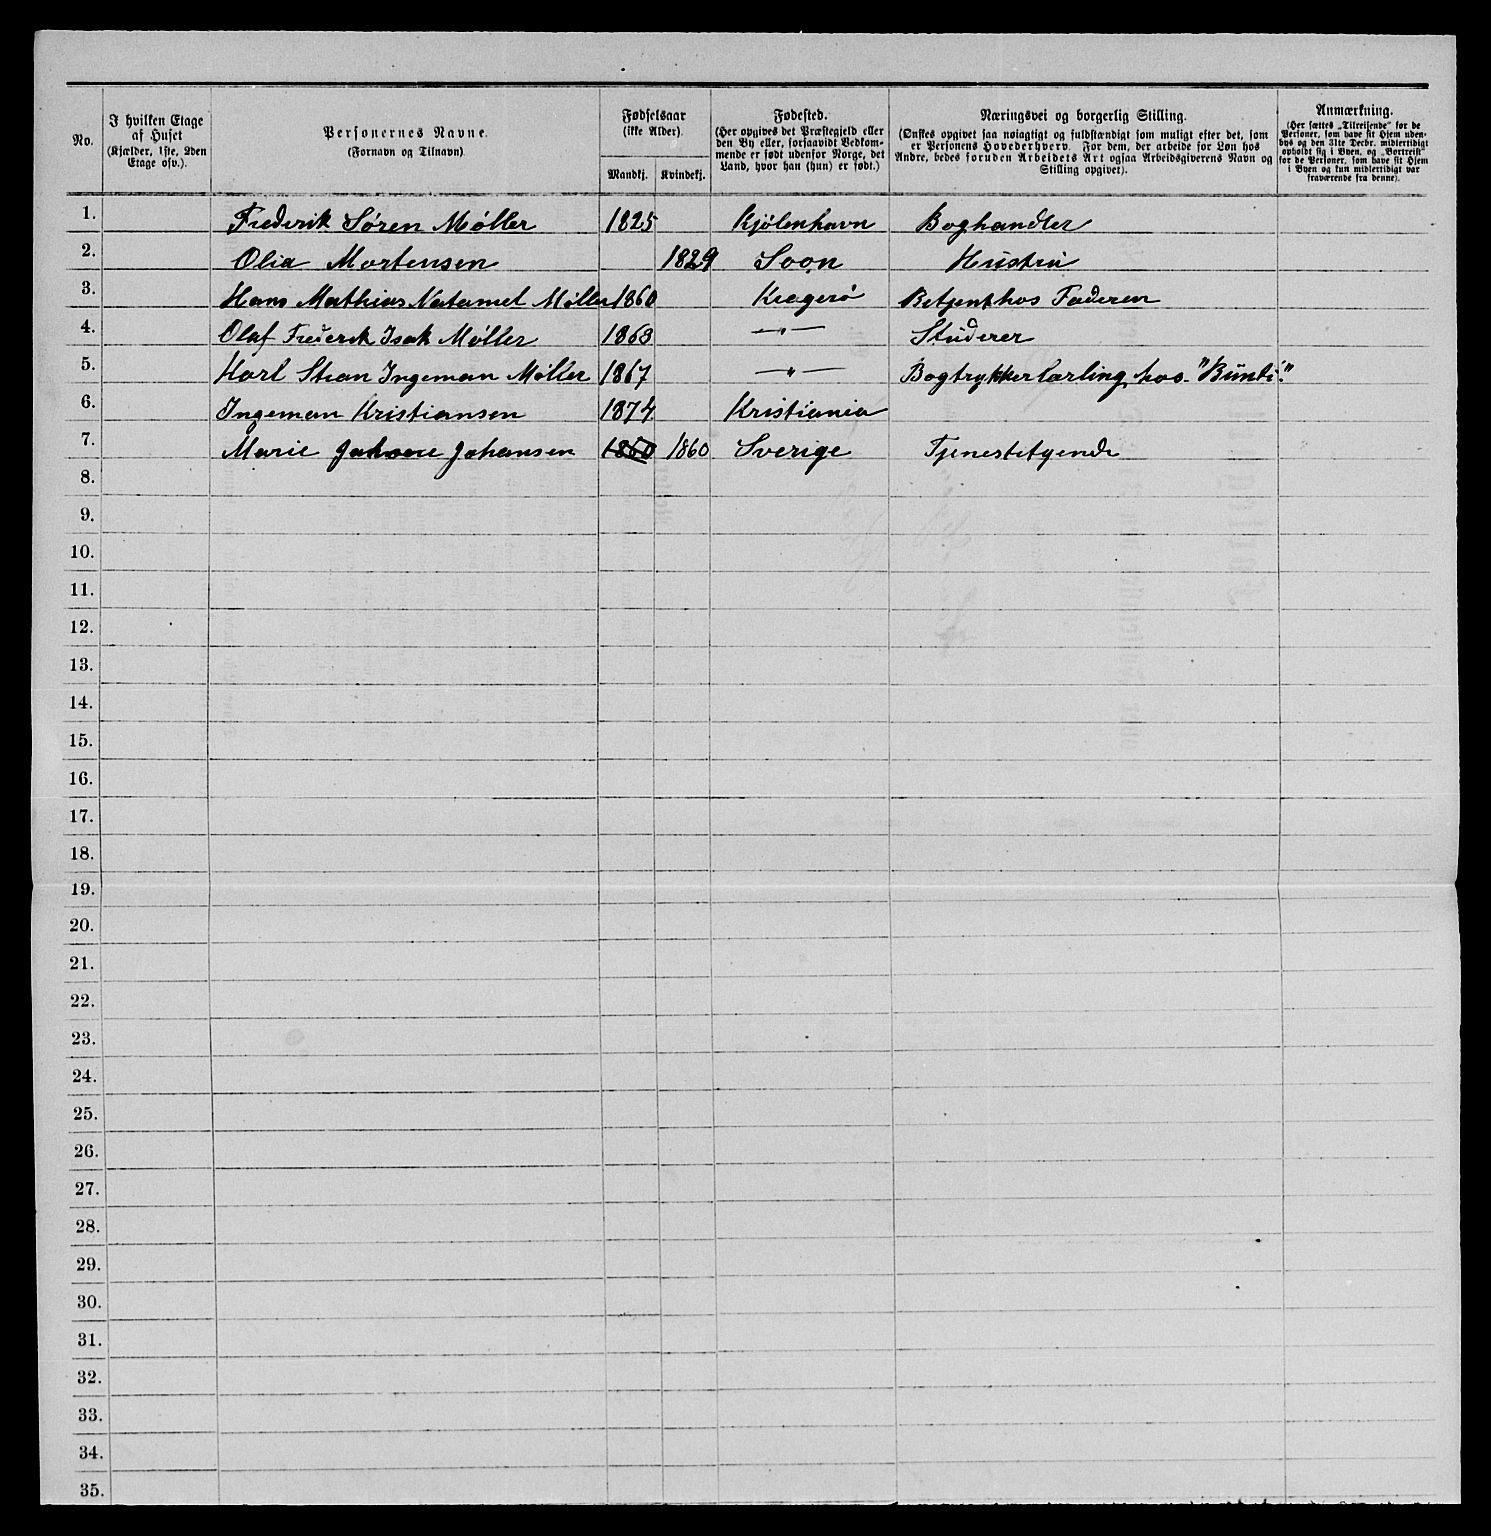 No. | I hvilken Etage af Huset (Kjælder, 1ste, 2den Etage osv.). | Personernes Navne. (Fornavn og Tilnavn). | Fødselsaar (ikke Alder). Mandkj. | Kvindekj. | Fødested. (Her opgives det Præstegjeld eller den By eller, forsaavidt Vedkommende er født udenfor Norge, det Land, hvor han (hun) er født.) | Næringsvei og borgerlig Stilling. (Ønskes opgivet saa nøiagtigt og fuldstændigt som muligt efter det, som er Personens Hovederhverv. For dem, der arbeide for Løn hos Andre, bedes foruden Arbeidets Art ogsaa Arbeidsgiverens Navn og Stilling opgivet). | Anmærkning. (Her sættes „Tilreisende" for de Personer, som have sit Hjem udenbys og den 31te Decbr. midlertidigt opholdt sig i Byen, og „Bortreist" for de Personer, som have sit Hjem i Byen og kun midlertidigt var fraværende fra denne).
1. Frederik Søren Møller 1825 Kjøbenhavn Boghandler
2. Olia Mortensen 1829 Soon Hustru
3. Hans Mathias Natamel Møller 1860 Kragerø Betjent hos Faderen
4. Olaf Frederik Isak Møller 1863 —"— Studerer
5. Karl Stian Ingeman Møller 1867 —"— Bogtrykkerlærling hos "Bundi."
6. Ingeman Kristiansen 1874 Kristiania
7. Marie Johansen 1860 1860 Sverige Tjenestetyende
8.
9.
10.
11.
12.
13.
14.
15.
16.
17.
18.
19.
20.
21.
22.
23.
24.
25.
26.
27.
28.
29.
30.
31.
32.
33.
34.
35.